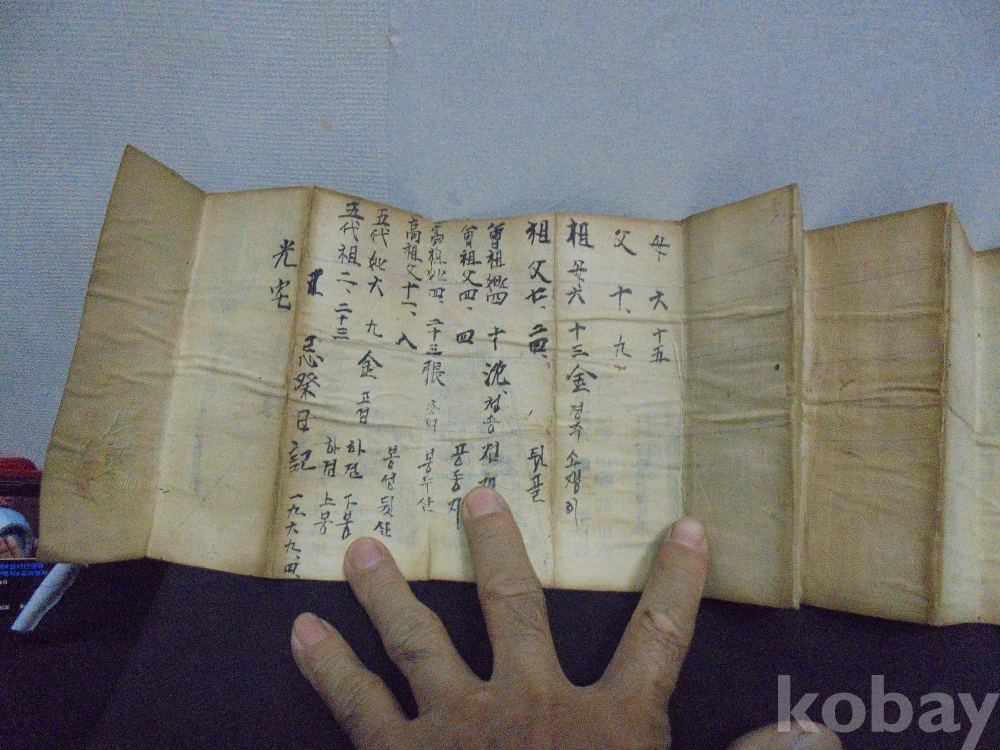 母 六 十五
父 十、九
祖母 六 十三 金 경주 소쟁이
祖父 廿、二四、 뒷골
曾祖妣四 十 沈 청송
曾祖父四、四
高祖妣四、二十三 張 봉두산
高祖父十一、八
五代妣六 九 金 봉성뒷산
五代祖二、二十三 하점 下봉
하점 上봉
忌祭日記 一九六九、四、
光宅
kobay